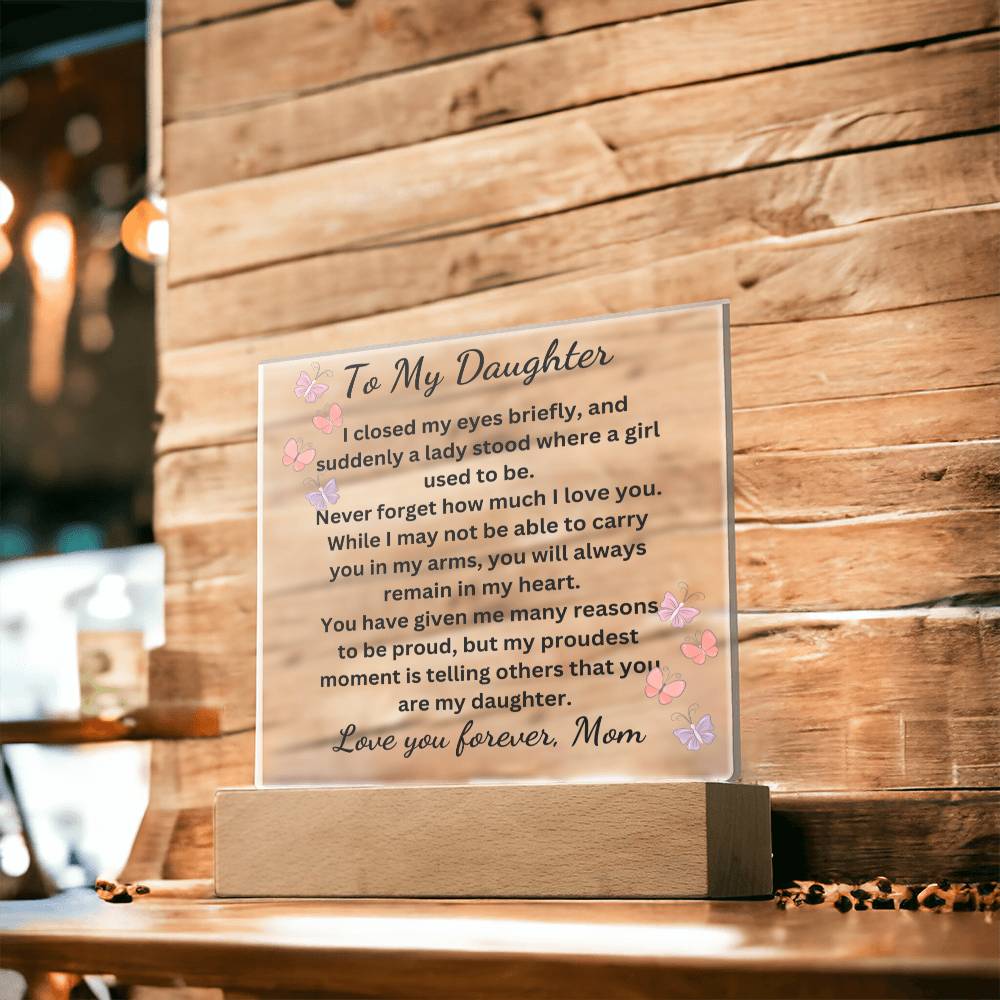 To My Daughter
I closed my eyes briefly, and
suddenly a lady stood where a girl
used to be.
Never forget how much I love you.
While I may not be able to carry
you in my arms, you will always
remain in my heart.
You have given me many reasons
to be proud, but my proudest
moment is telling others that you
are my daughter.
Love you forever, Mom